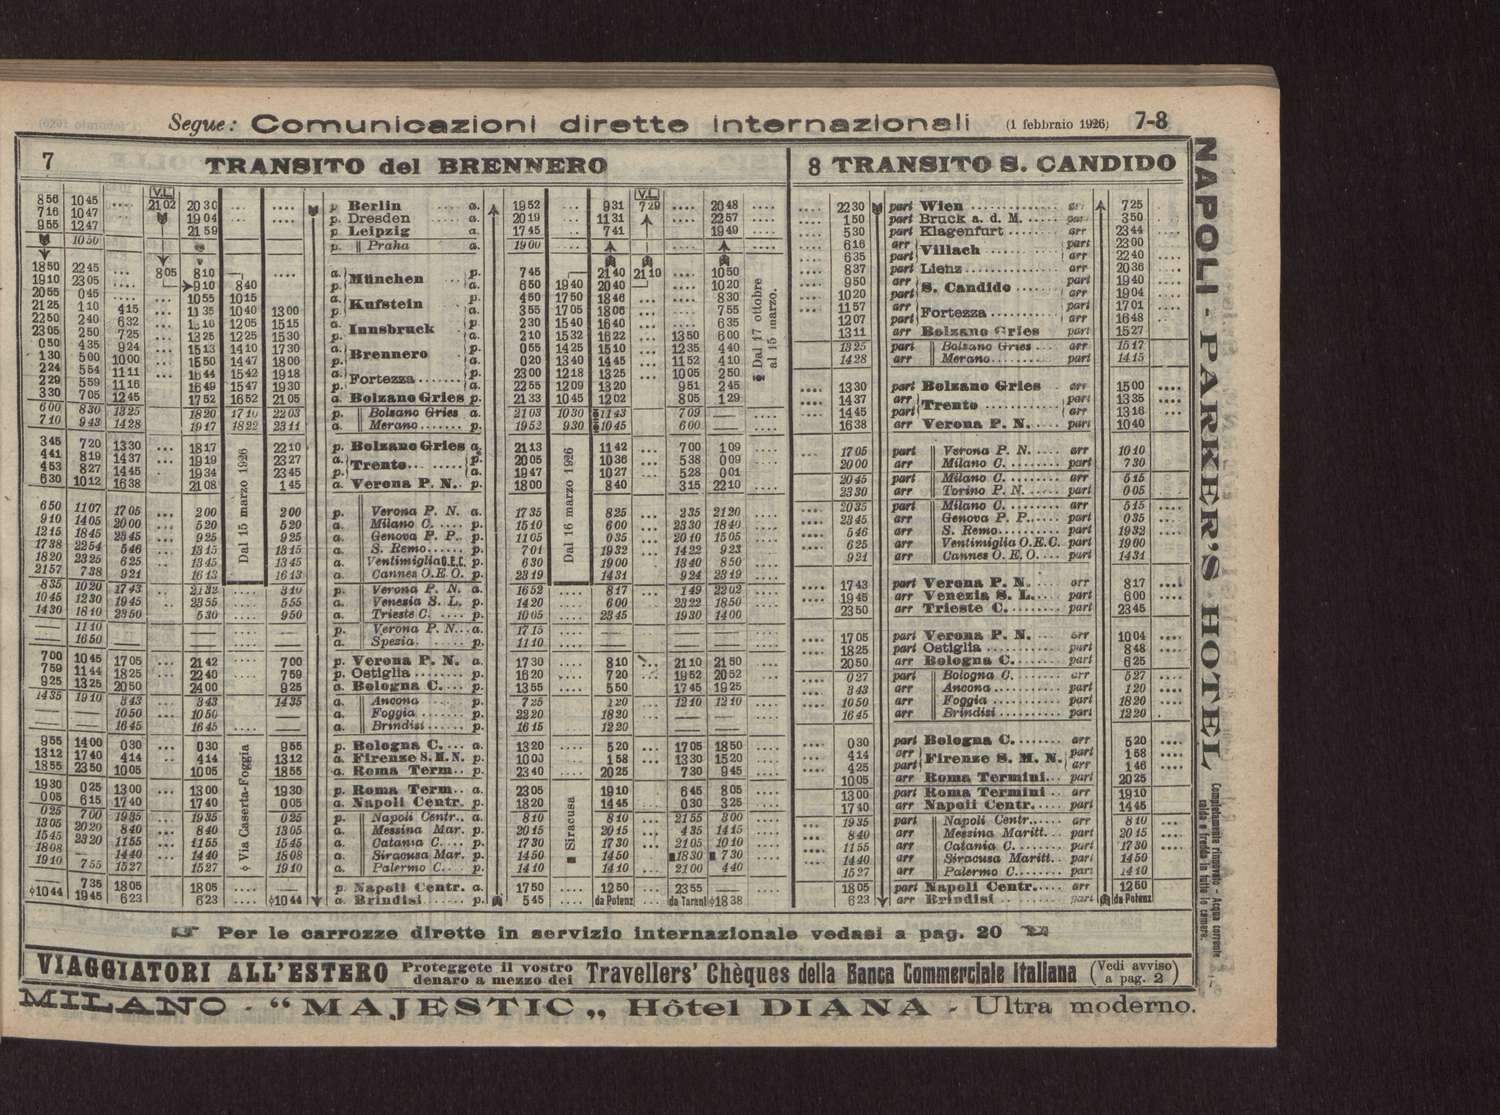 Segue: Comunicazioni dirette internazionali (1 febbraio 1926) 7-8
7 TRANSITO del BRENNERO
V.L. V.L.
856 1045 .... 2102 2030 .... .... p. Berlin .... a. 1952 .... 931 729 .... 2048 ....
716 1047 1904 p. Dresden .... a. 2019 1131 2257
955 1247 2159 p. Leipzig a. 1745 741 1949
1050 p. Praha a. 1900
1850 2245 ... 805 810 .... a. München p. 745 2140 2110 1050
1910 2305 910 840 p. a. 650 1940 2040 1020
2055 045 ... 1055 1015 a. Kufstein p. 450 1750 1846 ... .... 830
2125 110 415 1135 1040 1300 p. a. 355 1705 1806 755
2250 240 632 1205 1515 a. Innsbruck p. 230 1540 1640 635
2305 250 725 1325 1225 1530 p. a. 210 1532 1622 1350 600
050 435 924 1513 1410 1730 a. Brennero p. 055 1425 1510 1235 440
130 500 1000 1550 1447 1800 p. a. 020 1340 1445 1152 410
224 554 1111 1644 1542 1918 a. Fortezza p. 2300 1218 1325 1005 250
229 559 1116 1649 1547 1930 p. a. 2255 1209 1320 951 245
330 705 1245 1752 1652 2105 a. Bolzano Gries p. 2133 1045 1202 805 129
600 830 1325 1820 1710 2203 p. Bolzano Gries a. 2103 1030 1143 709
710 943 1428 1917 1822 2311 a. Merano p. 1952 930 1045 600
345 720 1330 1817 2210 p. Bolzano Gries a. 2113 1142 700 109
441 819 1437 1919 2327 a. Trento p. 2005 1036 538 009
453 827 1445 1934 2345 p. a. 1947 1027 528 001
630 1012 1638 2108 145 a. Verona P. N. p. 1800 840 315 2210
650 1107 1705 200 200 p. Verona P. N. a. 1735 825 335 2120
910 1405 2000 520 520 a. Milano C. p. 1510 600 2330 1840
1215 1845 2345 925 925 a. Genova P. P. p. 1105 035 2010 1505
1738 2254 546 1315 1315 a. S. Remo p. 701 1932 1422 923
1820 2325 625 1345 1345 a. Ventimiglia O.E.C. p. 630 1900 1340 850
2157 738 921 1613 1613 a. Cannes O.E.O. p. 2319 1431 924 2319
835 1020 1743 2132 310 p. Verona P. N. a. 1652 817 149 2202
1045 1230 1945 2355 555 a. Venezia S. L. p. 1420 600 2322 1850
1430 1810 2350 530 950 a. Trieste C. p. 1005 2345 1930 1400
1110 p. Verona P. N. a. 1715
1650 a. Spezia p. 1110
700 1045 1705 2142 700 p. Verona P. N. a. 1730 810 2110 2150
759 1144 1825 2240 759 p. Ostiglia a. 1620 720 1952 2052
925 1325 2050 2400 925 a. Bologna C. p. 1355 550 1745 1925
1435 1910 343 343 1435 a. Ancona p. 725 120 1210 1210
1050 1050 a. Foggia p. 2220 1820
1645 1645 a. Brindisi p. 1615 1220
955 1400 030 030 955 p. Bologna C. a. 1320 520 1705 1850
1312 1740 414 414 1312 a. Firenze S.M.N. p. 1000 158 1330 1520
1855 2350 1005 1005 1855 a. Roma Term. p. 2340 2025 730 945
1930 025 1300 1300 1930 p. Roma Term. a. 2305 1910 645 805
005 615 1740 1740 005 a. Napoli Centr. p. 1820 1445 030 325
025 700 1935 1935 025 p. Napoli Centr. a. 810 810 2155 300
1305 2020 840 840 1305 a. Messina Mar. p. 2015 2015 435 1415
1545 2320 1155 1155 1545 a. Catania C. p. 1730 1730 2105 1010
1808 1440 1440 1808 a. Siracusa Mar. p. 1450 1450 ■1830 ■730
1910 755 1527 1527 1910 a. Palermo C. p. 1410 1410 2100 440
735 1805 1805 p. Napoli Centr. a. 1750 1250 2355
1044 1945 623 623 1044 a. Brindisi p. 545 da Potenz da Tarant 1838
Dal 15 marzo 1926
Via Caserta-Foggia
Dal 16 marzo 1926
■ Siracusa
Dal 17 ottobre
al 15 marzo.
8 TRANSITO S. CANDIDO
2230 part Wien arr 725
150 part Bruck a. d. M. arr 350
530 part Klagenfurt 2344
616 arr Villach part 2300
635 part arr 2240
837 part Lienz arr 2036
950 arr S. Candido part 1940
1020 part arr 1904
1157 arr Fortezza part 1701
1207 part arr 1648
1311 arr Bolzano Gries part 1527
1325 part Bolzano Gries arr 1517
1428 arr Merano part 1415
1330 part Bolzano Gries arr 1500
1437 arr Trento part 1335
1445 part arr 1316
1638 arr Verona P. N. part 1040
1705 part Verona P. N. arr 1010
2000 arr Milano C. part 730
2045 part Milano C. arr 615
2330 arr Torino P. N. part 005
2035 part Milano C. arr 515
2345 arr Genova P. P. part 035
546 arr S. Remo part 1932
625 arr Ventimiglia O.E.C. part 1900
921 arr Cannes O. E. O. part 1431
1743 part Verona P. N. arr 817
1945 arr Venezia S. L. part 600
2350 arr Trieste C. part 2345
1705 part Verona P. N. arr 1004
1825 part Ostiglia arr 848
2050 arr Bologna C. part 625
027 part Bologna C. arr 527
343 arr Ancona part 120
1050 arr Foggia part 1820
1645 arr Brindisi part 1220
030 part Bologna C. arr 520
414 arr Firenze S. M. N. part 158
425 part arr 146
1005 arr Roma Termini part 2025
1300 part Roma Termini arr 1910
1740 arr Napoli Centr. part 1445
1935 part Napoli Centr. arr 810
840 arr Messina Maritt. part 2015
1155 arr Catania C. part 1730
1440 arr Siracusa Maritt. part 1450
1527 arr Palermo C. part 1410
1805 part Napoli Centr. arr 1250
623 arr Brindisi part da Potenz
Per le carrozze dirette in servizio internazionale vedasi a pag. 20
VIAGGIATORI ALL'ESTERO Proteggete il vostro denaro a mezzo dei Travellers' Chèques della Banca Commerciale Italiana (Vedi avviso a pag. 2)
MILANO - "MAJESTIC„ Hôtel DIANA - Ultra moderno.
NAPOLI - PARKER'S HOTEL
Completamente rinnovato - Acqua corrente
calda e fredda in tutte le camere.